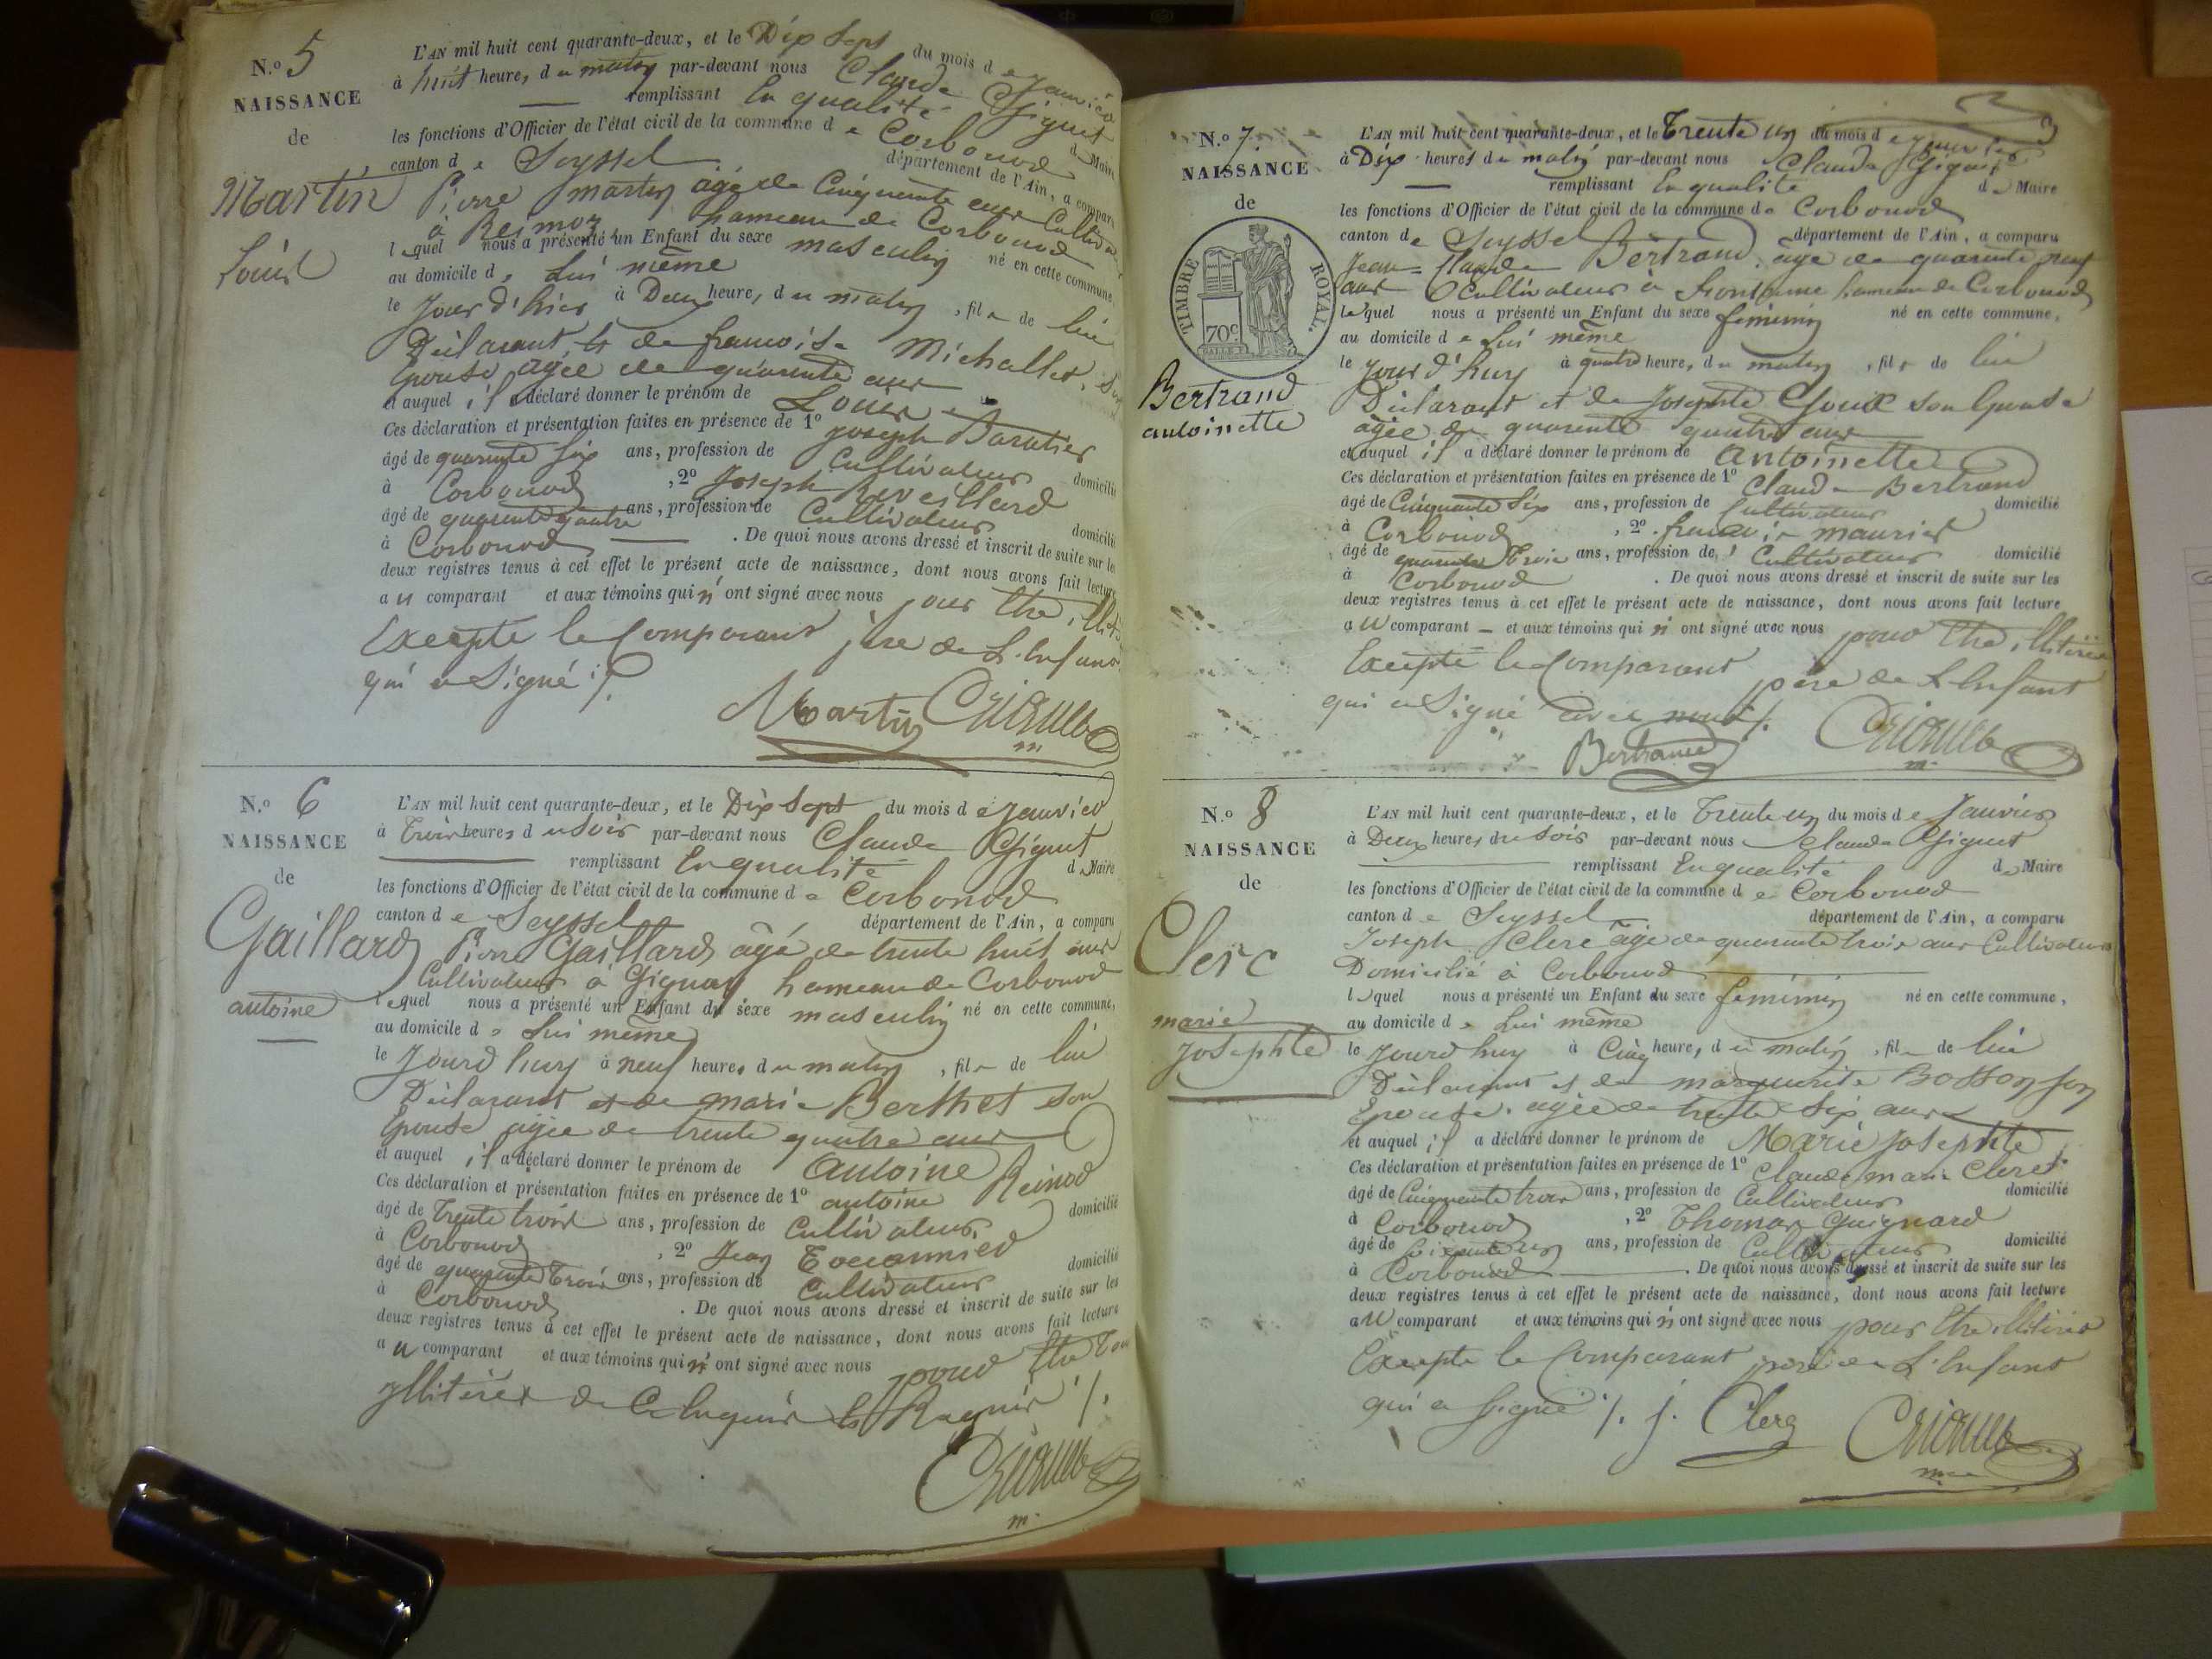 N.º 5
NAISSANCE
de
Martin
Louis
L'AN mil huit cent quarante-deux, et le Dix Sept du mois de Janvier
à huit heure, du matin par-devant nous Claude Gignet
remplissant En qualité de Maire
les fonctions d'Officier de l'état civil de la commune de Corbonod
canton de Seyssel département de l'Ain, a comparu
Pierre Martin âgé de Cinquante ans Cultiva
à Reimoz hameau de Corbonod
lequel nous a présenté un Enfant du sexe masculin né en cette commune,
au domicile de Lui même
le Jour d'hier à Deux heure, du matin, fils de lui
Déclarant et de francoise Michallet, Son
Epouse, agée de quarante ans
et auquel il a déclaré donner le prénom de Louis
Ces déclaration et présentation faites en présence de 1º Joseph Baratier
âgé de quarante Six ans, profession de Cultivateur domicilié
à Corbonod, 2º Joseph Reveillard
âgé de quarante quatre ans, profession de Cultivateur domicilié
à Corbonod. De quoi nous avons dressé et inscrit de suite sur les
deux registres tenus à cet effet le présent acte de naissance, dont nous avons fait lecture
au comparant et aux témoins qui n'ont signé avec nous pour être
Excepté le Comparant père de L'Enfant
qui a Signé ./.
Martin
m.
N.º 6
NAISSANCE
de
Gaillard
antoine
L'AN mil huit cent quarante-deux, et le Dix Sept du mois de Janvier
à Trois heures du Soir par-devant nous Claude Gignet
remplissant En qualité de Maire
les fonctions d'Officier de l'état civil de la commune de Corbonod
canton de Seyssel département de l'Ain, a comparu
Pierre Gaillard âgé de trente huit ans
Cultivateur à Gignay hameau de Corbonod
lequel nous a présenté un Enfant du sexe masculin né en cette commune,
au domicile de Lui même
le Jourd'huy à neuf heures du matin, fils de lui
Déclarant et de marie Berthet son
Epouse agée de trente quatre ans
et auquel il a déclaré donner le prénom de Antoine
Ces déclaration et présentation faites en présence de 1º antoine Reinod
âgé de Trente trois ans, profession de Cultivateur domicilié
à Corbonod, 2º Jean
âgé de quarante Trois ans, profession de Cultivateur domicilié
à Corbonod. De quoi nous avons dressé et inscrit de suite sur les
deux registres tenus à cet effet le présent acte de naissance, dont nous avons fait lecture
au comparant et aux témoins qui n'ont signé avec nous pour être
yllitérés de Ce Enquis et Requis ./.
m.
N.º 7.
NAISSANCE
de
TIMBRE ROYAL.
70 C.
Bertrand
antoinette
L'AN mil huit cent quarante-deux, et le Trente un du mois de Janvier
à Dix heures du matin par-devant nous Claude Gignet
remplissant En qualité de Maire
les fonctions d'Officier de l'état civil de la commune de Corbonod
canton de Seyssel département de l'Ain, a comparu
Jean-Claude Bertrand, âgé de quarante neuf
ans Cultivateur à hameau de Corbonod
lequel nous a présenté un Enfant du sexe feminin né en cette commune,
au domicile de Lui même
le Jour d'huy à quatre heure, du matin, fils de lui
Déclarant et de Josephte Son Epouse
agée de quarente quatre ans
et auquel il a déclaré donner le prénom de Antoinette
Ces déclaration et présentation faites en présence de 1º Claude Bertrand
âgé de Cinquante Six ans, profession de Cultivateur domicilié
à Corbonod, 2º. francois maurier
âgé de quarante Trois ans, profession de Cultivateur domicilié
à Corbonod. De quoi nous avons dressé et inscrit de suite sur les
deux registres tenus à cet effet le présent acte de naissance, dont nous avons fait lecture
au comparant et aux témoins qui n'ont signé avec nous pour être illitérés
Excepté le Comparant père de L'Enfant
qui a Signé avec nous ./.
Bertrand
m.
N.º 8
NAISSANCE
de
Clerc
marie
Josephte
L'AN mil huit cent quarante-deux, et le Trente un du mois de Janvier
à Deux heures du Soir par-devant nous Claude Gignet
remplissant En qualité de Maire
les fonctions d'Officier de l'état civil de la commune de Corbonod
canton de Seyssel département de l'Ain, a comparu
Joseph Clerc âgé de quarante trois ans Cultivateur
Domicilié à Corbonod
lequel nous a présenté un Enfant du sexe feminin né en cette commune,
au domicile de Lui même
le Jourd'huy à Cinq heure, du matin, fils de lui
Déclarant et de marguerite Bosson son
Epouse, agée de trente Six ans
et auquel il a déclaré donner le prénom de Marie Josephte
Ces déclaration et présentation faites en présence de 1º Claude marie Cleret
âgé de Cinquante trois ans, profession de Cultivateur domicilié
à Corbonod, 2º Thomas Guignard
âgé de Soixante un ans, profession de Cultivateur domicilié
à Corbonod. De quoi nous avons dressé et inscrit de suite sur les
deux registres tenus à cet effet le présent acte de naissance, dont nous avons fait lecture
au comparant et aux témoins qui n'ont signé avec nous pour être illitérés
Excepté le Comparant père de L'Enfant
qui a Signé ./. J. Clerc